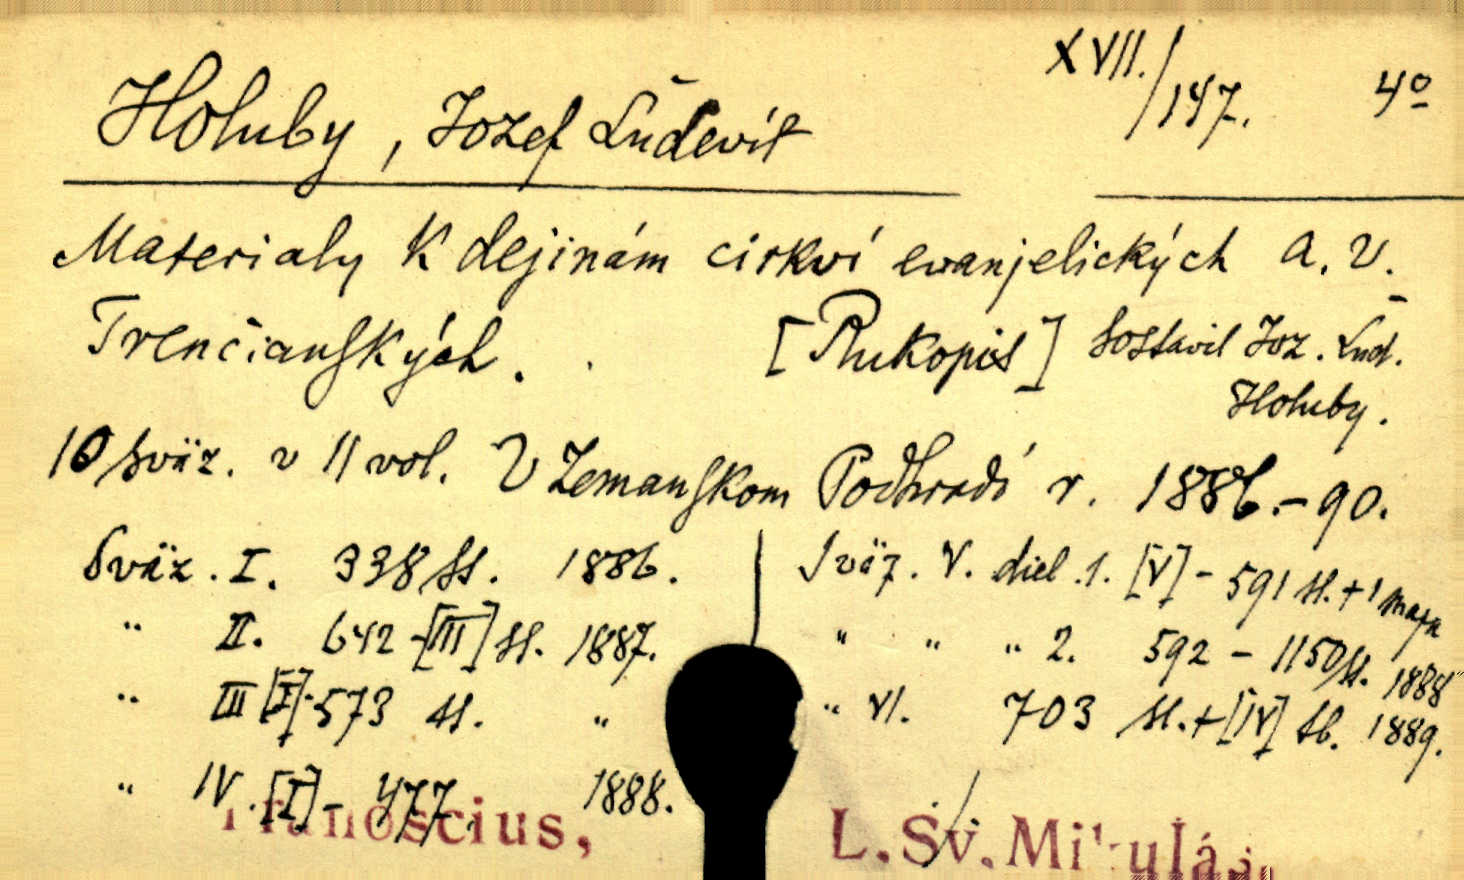 XVII./147. 4º
Holuby, Jozef Ľudevít
Materialy k dejinám cirkví ewanjelických a. V.
Trenčianskych. [Rukopis] Sostavil Joz. Ľud.
Holuby.
10 sväz. v 11 vol. V Zemanskom Podhradí r. 1886.-90.
Sväz. I. 338 ss. 1886.
" II. 642-[III] ss. 1887.
" III [I]-573 ss. "
" IV. [I]- 477, 1888.
Sväz. V. diel .1. [V]- 591 st. + 1 mapa
" " " 2. 592 - 1150 st. 1888"
" VI. 703 st. + [IV] sb. 1889.
Tranoscius, L. Sv. Mikuláš,